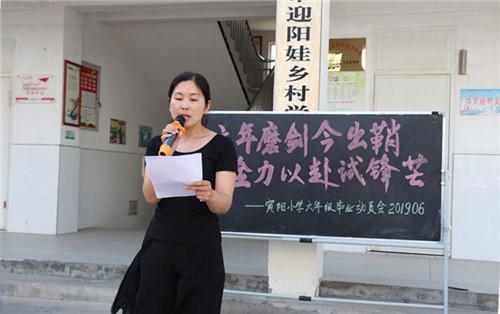 迎阳娃乡村学
六年磨剑今出鞘
全力以赴试锋芒
——寅阳小学六年级毕业动员会201906